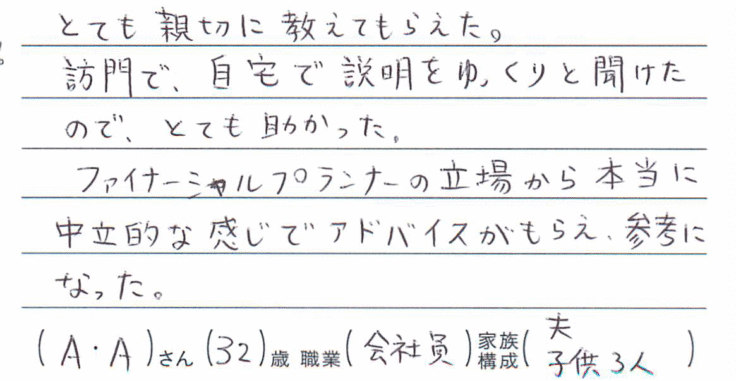 とても親切に教えてもらえた。
訪門で、自宅で説明をゆっくりと聞けた
ので、とても助かった。
ファイナーシャルプランナーの立場から本当に
中立的な感じでアドバイスがもらえ、参考に
なった。
(A・A)さん(32)歳 職業(会社員)家族構成(夫 子供3人)